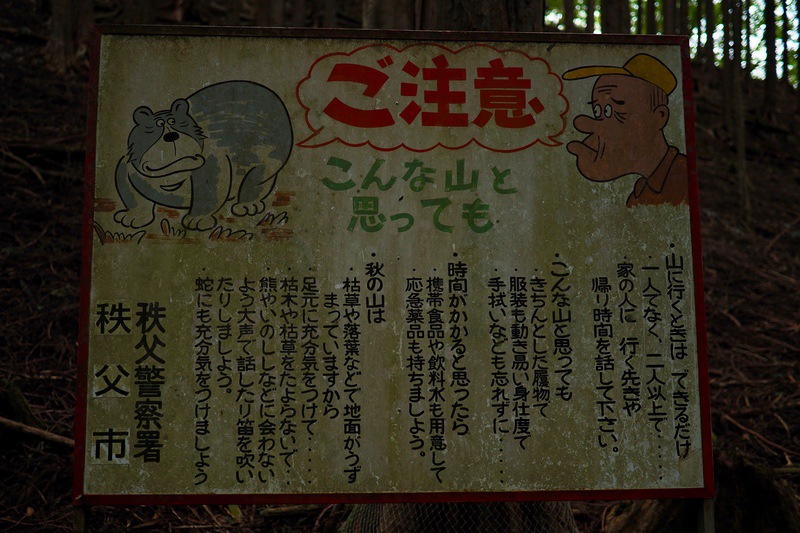 ご注意
こんな山と
思っても
・山に行くときは できるだけ
一人でなく、二人以上で‥‥‥
・家の人に 行く先きや
帰り時間を話して下さい。
・こんな山と思っても
きちんとした履物で
服装も動き易い身仕度で
手拭いなども忘れずに‥‥‥
・時間がかかると思ったら
携帯食品や飲料水も用意して
応急薬品も持ちましょう。
・秋の山は
・枯草や落葉などで地面がうず
まっていますから
足元に充分気をつけて‥‥‥
・枯木や枯草をたよらないで‥‥
・熊やいのししなどに会わない
よう大声で話したり笛を吹い
たりしましょう。
・蛇にも充分気をつけましょう
秩父警察署
秩父市